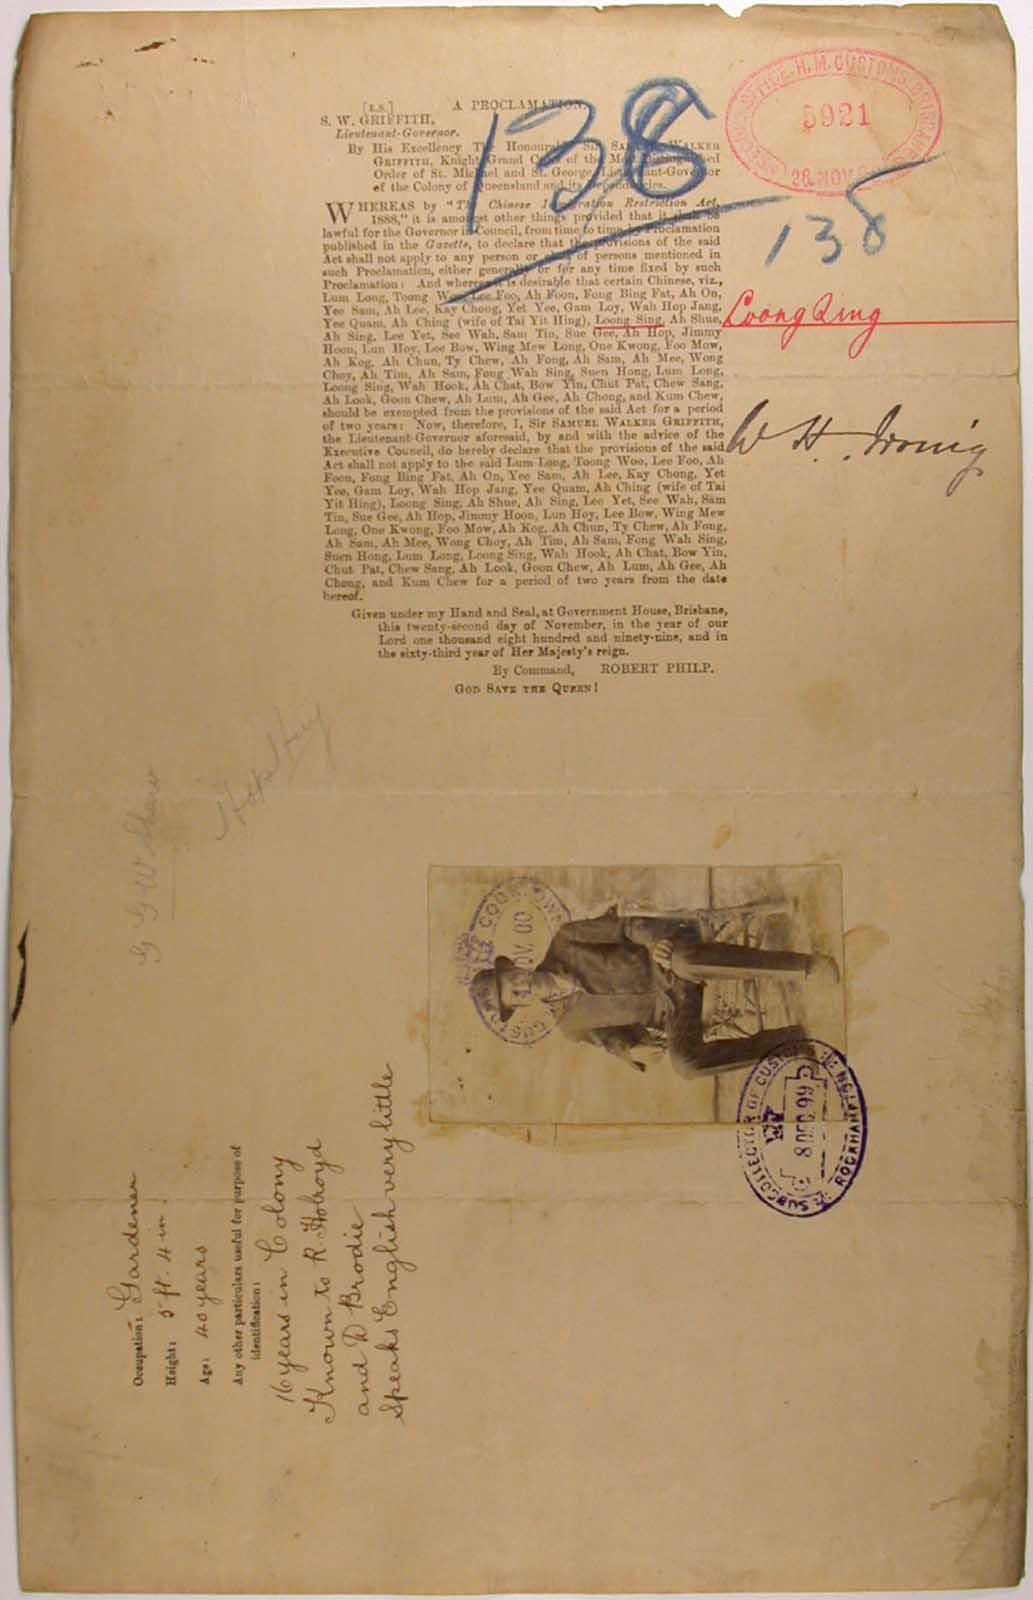 [L.S.] A PROCLAMATION.
S. W. GRIFFITH,
Lieutenant-Governor.
By His Excellency The Honourable Sir SAMUEL WALKER
GRIFFITH, Knight Grand Cross of the Most Distinguished
Order of St. Michael and St. George, Lieutenant-Governor
of the Colony of Queensland and its Dependencies.
WHEREAS by "The Chinese Immigration Restriction Act,
1888," it is amongst other things provided that it shall be
lawful for the Governor in Council, from time to time by Proclamation
published in the Gazette, to declare that the provisions of the said
Act shall not apply to any person or class of persons mentioned in
such Proclamation, either generally or for any time fixed by such
Proclamation: And whereas it is desirable that certain Chinese, viz.,
Lum Long, Toong Woo, Lee Foo, Ah Foon, Fong Bing Fat, Ah On,
Yee Sam, Ah Lee, Kay Chong, Yet Yee, Gam Loy, Wah Hop Jang,
Yee Quam, Ah Ching (wife of Tai Yit Hing), Loong Sing, Ah Shue,
Ah Sing, Lee Yet, See Wah, Sam Tin, Sue Gee, Ah Hop, Jimmy
Hoon, Lun Hoy, Lee Bow, Wing Mew Long, One Kwong, Foo Mow,
Ah Kog, Ah Chun, Ty Chew, Ah Fong, Ah Sam, Ah Mee, Wong
Choy, Ah Tim, Ah Sam, Fong Wah Sing, Suen Hong, Lum Long,
Loong Sing, Wah Hook, Ah Chat, Bow Yin, Chut Pat, Chew Sang,
Ah Look, Goon Chew, Ah Lum, Ah Gee, Ah Chong, and Kum Chew,
should be exempted from the provisions of the said Act for a period
of two years: Now, therefore, I, Sir SAMUEL WALKER GRIFFITH,
the Lieutenant-Governor aforesaid, by and with the advice of the
Executive Council, do hereby declare that the provisions of the said
Act shall not apply to the said Lum Long, Toong Woo, Lee Foo, Ah
Foon, Fong Bing Fat, Ah On, Yee Sam, Ah Lee, Kay Chong, Yet
Yee, Gam Loy, Wah Hop Jang, Yee Quam, Ah Ching (wife of Tai
Yit Hing), Loong Sing, Ah Shue, Ah Sing, Lee Yet, See Wah, Sam
Tin, Sue Gee, Ah Hop, Jimmy Hoon, Lun Hoy, Lee Bow, Wing Mew
Long, One Kwong, Foo Mow, Ah Kog, Ah Chun, Ty Chew, Ah Fong,
Ah Sam, Ah Mee, Wong Choy, Ah Tim, Ah Sam, Fong Wah Sing,
Suen Hong, Lum Long, Loong Sing, Wah Hook, Ah Chat, Bow Yin,
Chut Pat, Chew Sang, Ah Look, Goon Chew, Ah Lum, Ah Gee, Ah
Chong, and Kum Chew for a period of two years from the date
hereof.
Given under my Hand and Seal, at Government House, Brisbane,
this twenty-second day of November, in the year of our
Lord one thousand eight hundred and ninety-nine, and in
the sixty-third year of Her Majesty's reign.
By Command, ROBERT PHILP.
GOD SAVE THE QUEEN!
138
OFFICE. H.M. CUSTOMS. BRISBANE
5921
26 NOV
138
Loong Sing
W. H. Irving
G W Shaw
COOKTOWN
NOV. 00
CUSTOMS
SUBCOLLECTOR OF CUSTOMS
8 DEC 99
ROCKHAMPTON
Occupation: Gardener
Height: 5 ft. 4 in.
Age: 40 years
Any other particulars useful for purpose of
identification:
16 years in Colony
Known to R. Holroyd
and D Brodie
Speaks English very little